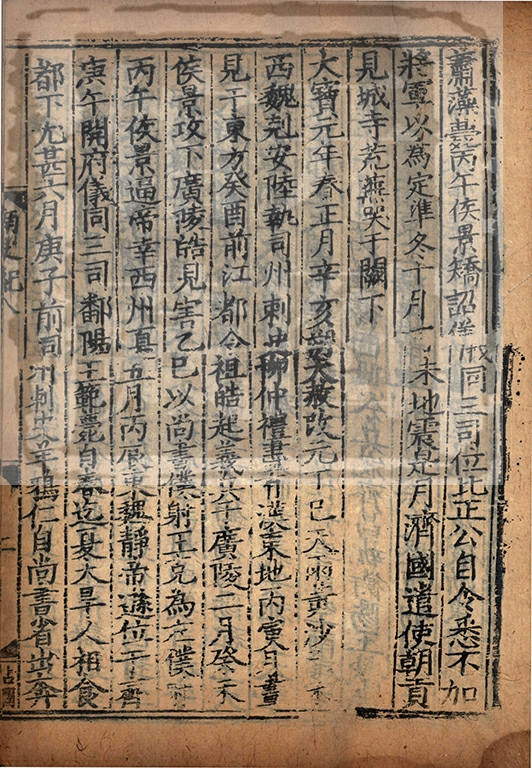 蕭藻薨丙午侯景矯詔儀同三司位比正公自今悉不加
將軍以為定準冬十月未地震是月濟國遣使朝貢
見城寺荒蕪哭于闕下
大寶元年春正月辛亥朔大赦改元丁巳天雨黃沙未
西魏剋安陸執司州刺史柳仲禮盡有漢東地丙寅月晝
見于東方癸酉前江都令祖皓起義兵于廣陵二月癸未
侯景攻下廣陵皓見害乙巳以尚書僕射王克為左僕射
丙午侯景逼帝幸西州夏五月丙辰東魏靜帝遜位于齊
庚午開府儀同三司鄱陽王範薨自春迄夏大旱人相食
都下尤甚六月庚子前司州刺史羊鴉仁自尚書省出奔
南史紀八
二